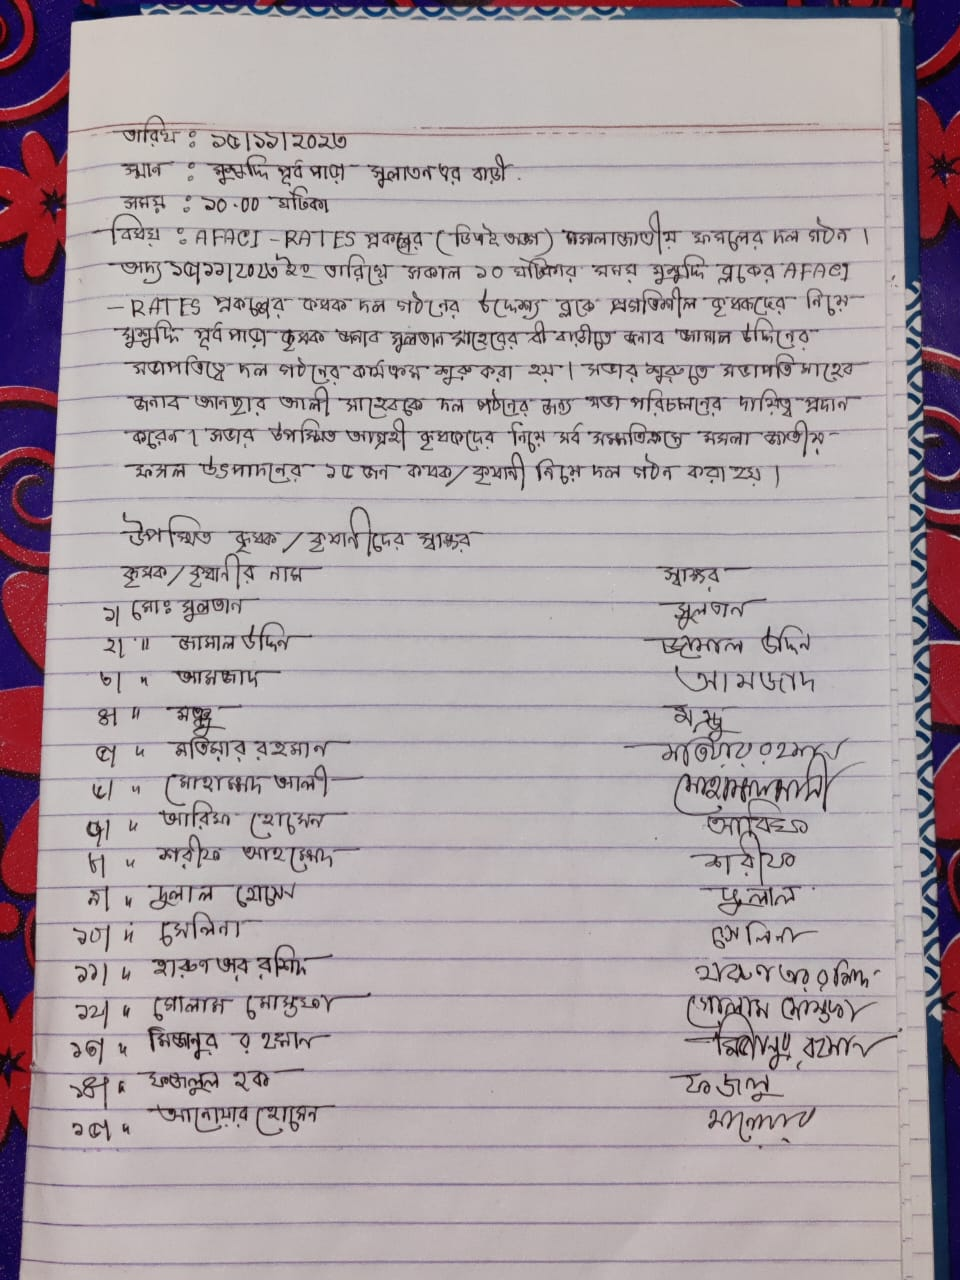 তারিখ : ১৫/১১/২০২৩
স্থান : মুশুদ্দি পূর্ব পাড়া সুলাতন এর বাড়ী.
সময় : ১০.00 ঘটিকা
বিষয় : AFACI-RATES প্রকল্পের (ডিএই অঙ্গ) মসলাজাতীয় ফসলের দল গঠন।
অদ্য ১৫/১১/২০২৩ ইং তারিখে সকাল ১০ ঘটিকার সময় মুশুদ্দি ব্লকের AFACI
-RATES প্রকল্পের কৃষক দল গঠনের উদ্দেশ্য ব্লকে প্রগতিশীল কৃষকদের নিয়ে
মুশুদ্দি পূর্ব পাড়া কৃষক জনাব সুলতান সাহেবের বাড়ীতে জনাব জামাল উদ্দিনের
সভাপতিত্বে দল গঠনের কার্যক্রম শুরু করা হয়। সভার শুরুতে সভাপতি সাহেব
জনাব আনছার আলী সাহেবকে দল গঠনের জন্য সভা পরিচালনের দায়িত্ব প্রদান
করেন। সভার উপস্থিত আগ্রহী কৃষকদের নিয়ে সর্ব সম্মতিক্রমে মসলা জাতীয়
ফসল উৎপাদনের ১৫ জন কৃষক/কৃষানী নিয়ে দল গঠন করা হয়।
উপস্থিত কৃষক/কৃষানীদের স্বাক্ষর
কৃষক/কৃষানীর নাম স্বাক্ষর
১। মোঃ সুলতান সুলতান
২। " জামাল উদ্দিন জামাল উদ্দিন
৩। " আমজাদ আমজাদ
৪। " মঞ্জু মঞ্জু
৫। " মতিয়ার রহমান মতিয়ার রহমান
৬। " মোহাম্মদ আলী মোহাম্মদ আলী
৭। " আরিফ হোসেন আরিফ
৮। " শরীফ আহম্মেদ শরীফ
৯। " দুলাল হোসেন দুলাল
১০। " সেলিনা সেলিনা
১১। " হারুণ অর রশিদ হারুণ অর রশিদ
১২। " গোলাম মোস্তফা গোলাম মোস্তফা
১৩। " মিজানুর রহমান মিজানুর রহমান
১৪। " ফজলুল হক ফজলু
১৫। " আনোয়ার হোসেন